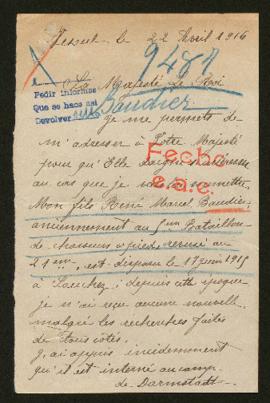 le 22 Avril 1916
9487
A Sa Majesté Le Roi
Pedir informes
Que se haos asi
Devolver
Baudier
Je me permets de
m'adresser à Votre Majesté
pour qu'Elle daigne s'intéresser
Fecho
au cas que je vais soumettre
e.a.c.
Mon fils René Marcel Baudier
anciennement au 5eme Bataillon
de chasseurs à pieds
21 ans, est disparu le 17 juin 1915
à ; depuis cette époque
je n'ai reçu aucune nouvelle,
malgré les recherches faites
de tous côtés.
J'ai appris incidemment
qu'il est interné au camp
de Darmstadt